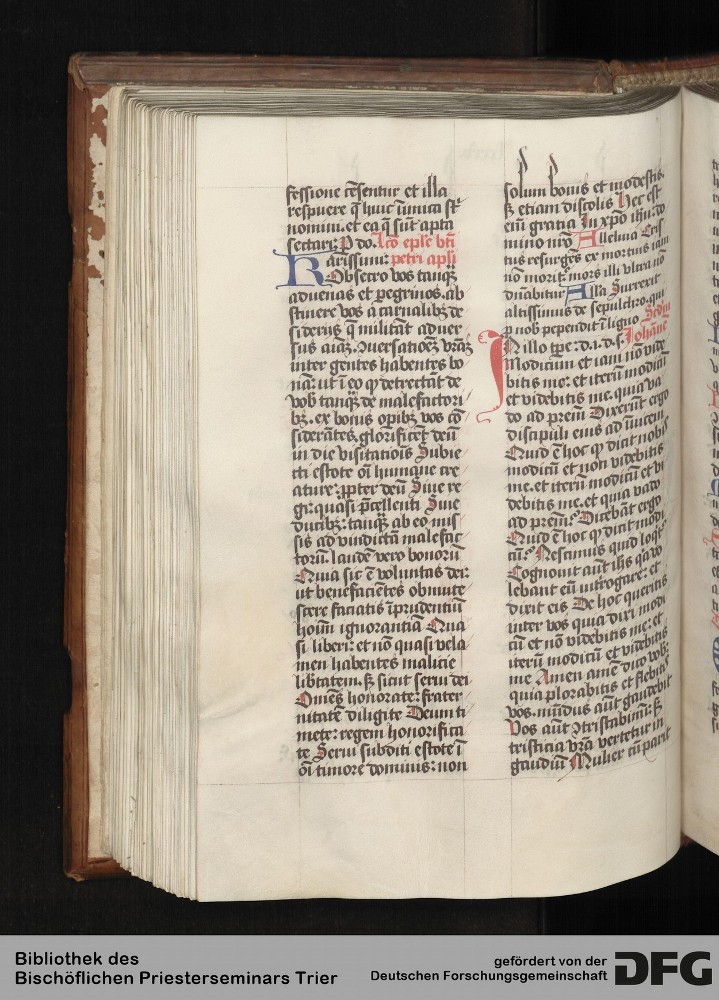 fessione cēsentur et illa
respuere q̄ huic inimica st̄
nomini. et ea q̄ sūt apta
sectari: P do. Lcō eplē bti
Karissimi: petri apli
Obsecro vos tanq̄
aduenas et pegrinos. ab
stinere vos a carnalibꝫ de
siderijs q̄ militāt aduer
sus aīaꝫ. ꝯuersatioēꝫ vrāꝫ
inter gentes habentes bo
nā: ut ī eo qͥ detrectāt de
vob tanqꝫ de malefactori
bꝫ. ex bonis opibꝫ vos cō
siderātes, glorificēt deū
in die visitatiois Subie
cti estote oī humane cre
ature: ꝓpter deū Siue re
gi: quasi p̄cellenti Siue
ducibꝫ: tanqꝫ ab eo mis
sis ad vindictā malefac
torū: laudē vero bonorū
Quia sic ē voluntas dei:
ut benefaciētes obmute
scere faciatis īprudentiū
hoīm ignorantiā Qua
si liberi: et nō quasi vela
men habentes malicie
lib̄tatem. sꝫ sicut serui dei
Omēs honorate: frater
nitatē diligite Deum ti
mete: regem honorifica
te Serui subditi estote ī
oī timore dominis: non
solum bonis et modestis.
sꝫ etiam discolis Hec est
eni gratia In xpō ihū do
mino nrō Alleluia Cris
tus resurgēs ex mortuis iam
nō morit mors illi vltra nō
dn̄abitur Alla Surrexit
altissimus de sepulchro. qui
p nob pependit ī ligno Scdm
In illo tpe: d. i. d. s. Johanē
Modicum et iam nō vide
bitis me: et iterū modicū
et videbitis me. quia va
do ad prem̄ Dixerūt ergo
discipuli eius ad inuicem
Quid ē hoc qͥ dicit nobis
modicū et non videbitis
me. et iterū modicū et vi
debitis me. et quia vado
ad prem̄ Dicebāt ergo
Quid ē hoc qͥ dicit modi
cū Nescimus quid loqͥt
Cognouit aut ihs qa vo
lebant eū introgare: et
dixit eis De hoc queritis
inter vos quia dixi modi
cū et nō videbitis me: et
iterū modicū et videbitis
me Amen amē dico vob:
quia plorabitis et flebitis
vos. mūdus aūt gaudebit
Vos aūt ꝯtristabimī: sꝫ
tristicia vrā vertetur in
gaudiū Mulier cū parit
Bibliothek des
Bischöflichen Priesterseminars Trier
gefördert von der
Deutschen Forschungsgemeinschaft
DFG